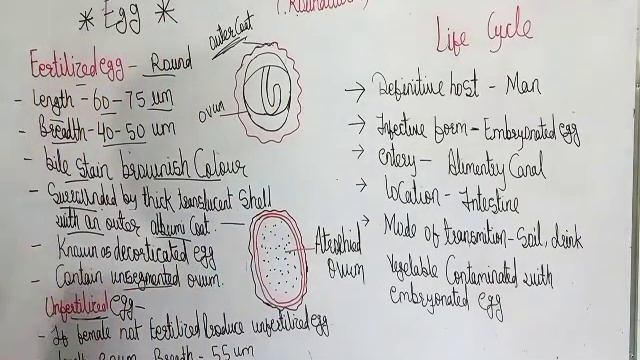 * Egg *
(Roundwo
Fertilized egg - Round
- Length - 60 - 75 um
- Breadth - 40 - 50 um
- bile stain brownish Colour
- Surrounded by thick translucent Shell
with an outer album Coat.
- Known as decorticated egg
- Contain unsegmented ovum.
Unfertilized egg -
- If female not fertilized produce unfertilized egg
Breadth - 55 um
outer Coat
ovum
Atrophied
ovum
Life Cycle
→ Definitive host - Man
→ Infective form - Embryonated egg
→ entery - Alimentry Canal
→ location - Intestine
→ Mode of transmition - Soil, drink
Vegetable Contaminated with
Embryonated egg